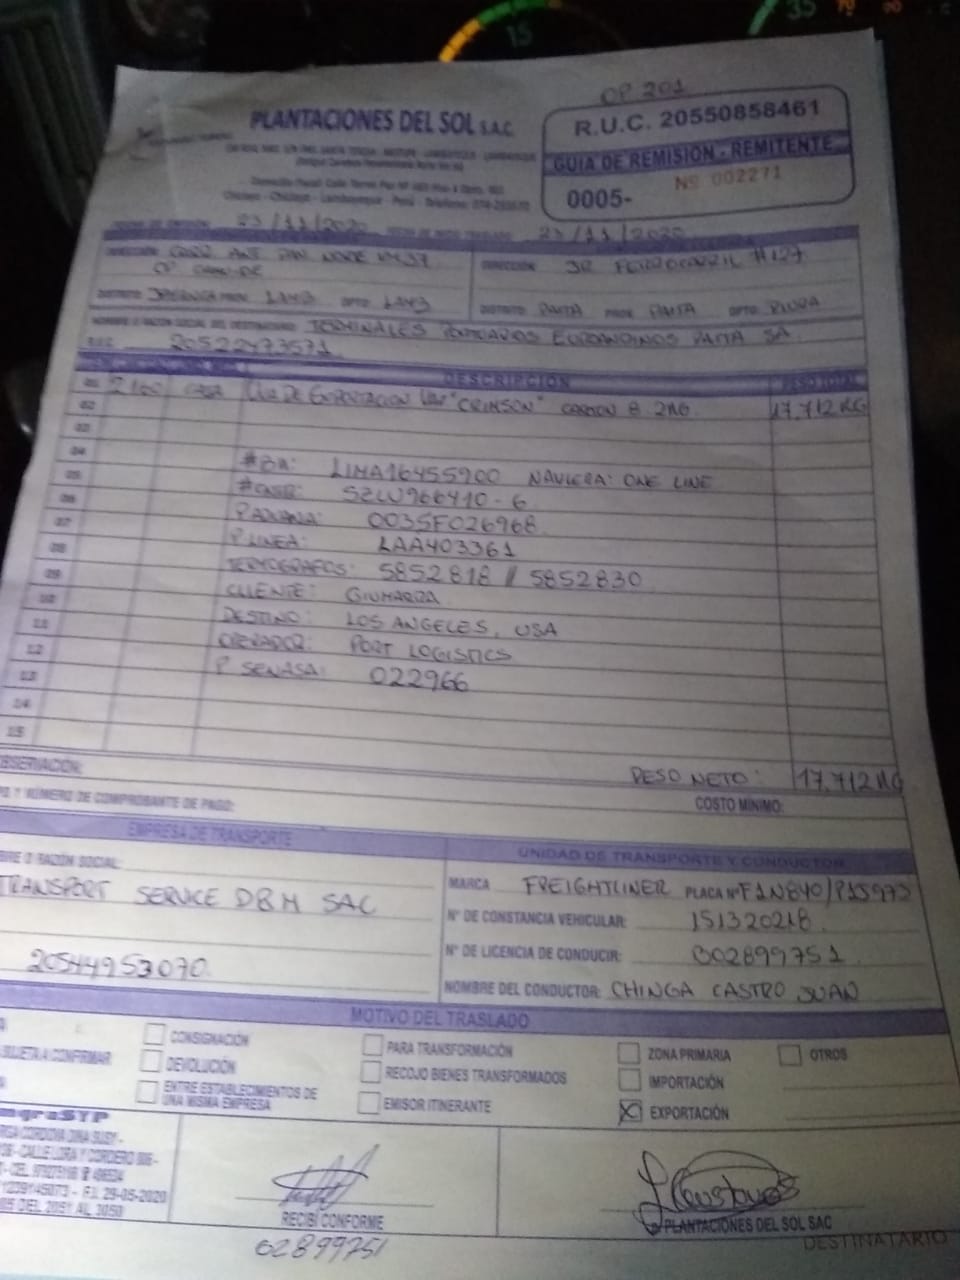 OP 201
PLANTACIONES DEL SOL S.A.C.
R.U.C. 20550858461
GUIA DE REMISION - REMITENTE
0005- Nº 002271
Chiclayo - Chiclayo - Lambayeque - Perú - Teléfono:
23/11/2020 23/11/2020
DIRECCIÓN DIRECCIÓN JR FERROCARRIL #127
DISTRITO PROV. LAMB DPTO LAMB DISTRITO PAITA PROV PAITA DPTO PIURA
NOMBRE O RAZON SOCIAL DEL DESTINATARIO TERMINALES PORTUARIOS EUROANDINOS PAITA SA.
R.U.C. 20522473571
DESCRIPCIÓN PESO TOTAL
01 2160 CAJA UVA DE EXPORTACION VAR "CRIMSON" CARTON 8.2KG. 17.712 KG
02
03
04 #BK: LIMA16455900 NAVIERA: ONE LINE
05 #CNTR: SZLU966410-6
06 P.ADUANA: 0035F026968
07 P.LINEA: LAA403361
08 TERMOGRAFOS: 5852818 // 5852830
09 CLIENTE: GIUMARRA
10 DESTINO: LOS ANGELES, USA
11 OPERADOR: PORT LOGISTICS
12 P SENASA: 022966
13
14
15
OBSERVACIÓN: PESO NETO: 17.712 KG
Y NÚMERO DE COMPROBANTE DE PAGO: COSTO MÍNIMO:
EMPRESA DE TRANSPORTE UNIDAD DE TRANSPORTE Y CONDUCTOR
BRE O RAZÓN SOCIAL:
TRANSPORT SERVICE DBM SAC
20544953070
MARCA FREIGHTLINER PLACA Nº F1N840/P1S973
N° DE CONSTANCIA VEHICULAR: 151320218
N° DE LICENCIA DE CONDUCIR: 002899751
NOMBRE DEL CONDUCTOR: CHINGA CASTRO JUAN
MOTIVO DEL TRASLADO
SUJETA A CONFIRMAR
CONSIGNACIÓN
DEVOLUCIÓN
ENTRE ESTABLECIMIENTOS DE
UNA MISMA EMPRESA
PARA TRANSFORMACIÓN
RECOJO BIENES TRANSFORMADOS
EMISOR ITINERANTE
ZONA PRIMARIA
IMPORTACIÓN
EXPORTACIÓN
OTROS
CORDOVA DINA SUSY -
CALLE LORA Y CORDERO
F.I. 29-05-2020
DEL 2051 AL 3050
RECIBÍ CONFORME
02899751
PLANTACIONES DEL SOL SAC
DESTINATARIO